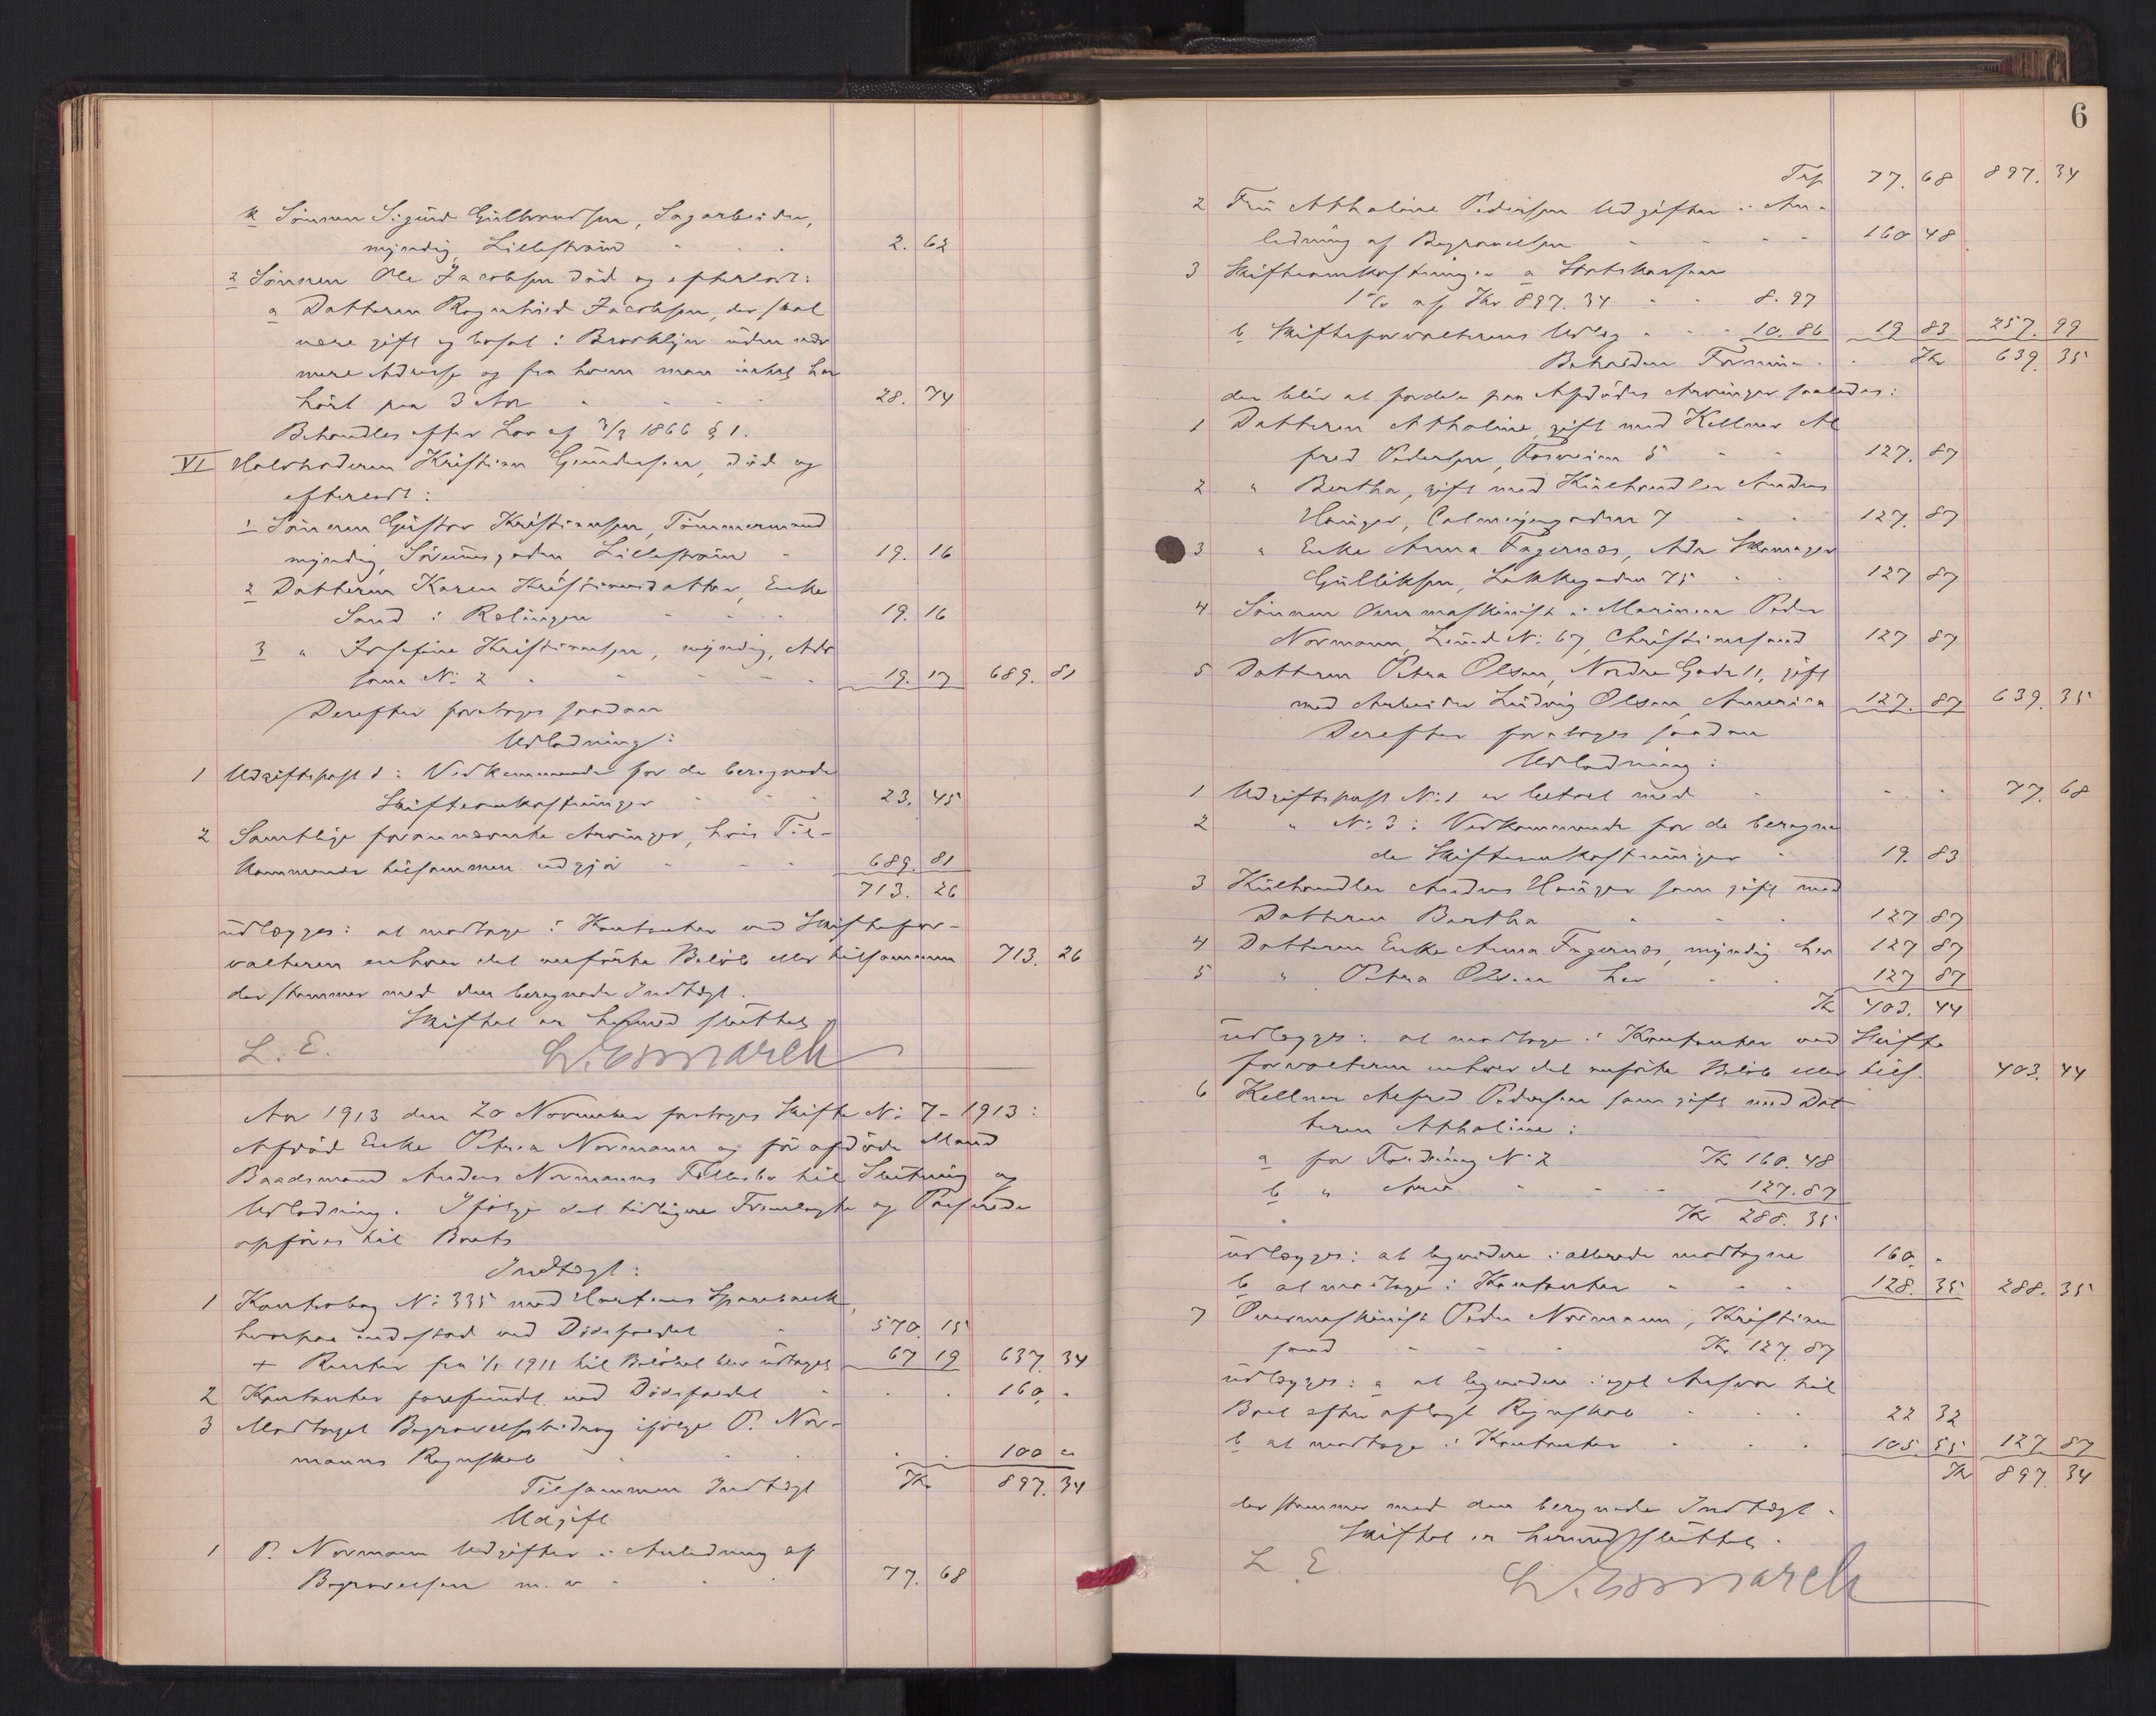 k Sönnen Sigurd Gulbrandsen, Sagarbeider,
myndig, Lillestrøm 2. 62
2 Sönnen Ole Jacobsen död og efterladt:
a Datteren Ragnhild Jacobsen, der skal
være gift og bosat i Brooklyn uden nær
mere Adresse og fra hvem man intet har
hört paa 3 Aar 28. 74
Behandles efter Lov af 1866 § 1.
VI Halvbroderen Kristian Gundersen, död og
efterladt:
1 Sönnen Gustav Kristiansen, Tömmermand
myndig, Lillestrøm 19. 16
2 Datteren Karen Kristiansdatter, Enke
Sand i Rælingen 19. 16
3 " Josefine Kristiansen, myndig, Adr
som N: 2 19. 17 689. 81
Derefter foretages saadan
Udlodning:
1 Udgiftspost d: Vedkommende for de beregnede
Skifteomkostninger 23. 45
2 Samtlige forannævnte Arvinger, hvis Til-
kommende tilsammen udgjör 689. 81
713. 26
udlægges: at modtage i Kontanter ved Skiftefor-
valteren enhver det anförte Belöb eller tilsammen 713. 26
der stemmer med den beregnede Indtægt.
Skiftet er hermed sluttet
L. E. L. Esmarch
Aar 1913 den 20 November foretoges Skifte N: 7 - 1913:
Afdöd Enke Petrea Normann og för afdöde Mand
Baadsmand Anders Normanns Fællesbo til Slutning og
Udlodning. Ifölge det tidligere Fremlagte og Passerede
opföres til Boets
Indtægt:
1 Kontrabog N: 335 med Hortens Sparebank,
hvorpaa indestod ved Dödsfaldet 570. 15
+ Renter fra 1/1 1911 til Belöbet blev udtaget 67 19 637. 34
2 Kontanter forefundet ved Dödsfaldet 160. "
3 Modtaget Begravelsesbidrag ifölge P. Nor-
manns Regnskab 100 "
Tilsammen Indtægt Kr 897. 34
Udgift
1 P. Normann Udgifter i Anledning af
Begravelsen m. v. 77. 68
6
Trsp 77. 68 897. 34
2 Fru Athaline Pedersen Udgifter i An-
ledning af Begravelsen 160 48
3 Skifteomkostninger a Statskassen
1% af Kr 897. 34 8. 97
b Skifteforvalterens Udlæg 10. 86 19 83 257. 99
Beholden Formue Kr 639. 35
der bliver at fordele paa Afdödes Arvinger saaledes:
1 Datteren Athaline, gift med Kellner Al
fred Pedersen, 5 127. 87
2 " Bertha, gift med Kulhandler Anders
Hauger, Calmeyergaden 7 127. 87
3 " Enke Anna Fagernæs, Adr Skomager
Gulliksen, Lakkegaden 75 127 87
4 Sönnen Overmaskinist i Marinen Peder
Normann, Lund N: 67, Christianssand 127 87
5 Datteren Petra Olsen, Nordre Gade 11, gift
med Arbeider Ludvig Olsen, Amerika 127. 87 639. 35
Derefter foretages saadan
Udlodning:
1 Udgiftspost N: 1 er betalt med 77. 68
2 " N: 3: Vedkommende for de beregne
de Skifteomkostninger 19. 83
3 Kulhandler Anders Hauger som gift med
Datteren Bertha 127 87
4 Datteren Enke Anna Fagernæs, myndig her 127 87
5 " Petra Olsen her 127 87
Kr 403. 44
udlægges: at modtage i Kontanter ved Skifte
forvalteren enhver det anförte Belöb eller tils. 403. 44
6 Kellner Alfred Pedersen som gift med Dat
teren Athaline:
a for Fordring N: 2 Kr 160. 48
b " Arv 127. 87
Kr 288. 35
udlægges: at liqvidere i allerede modtagne 160. "
b at modtage i Kontanter 128. 35 288. 35
7 Overmaskinist Peder Normann, Kristian
sand Kr 127. 87
udlægges: a at liqvidere i eget Ansvar til
Boet efter aflagt Regnskab 22 32
b at modtage i Kontanter 105. 55 127 87
Kr 897. 34
der stemmer med den beregnede Indtægt.
Skiftet er hermed sluttet.
L E. L. Esmarch